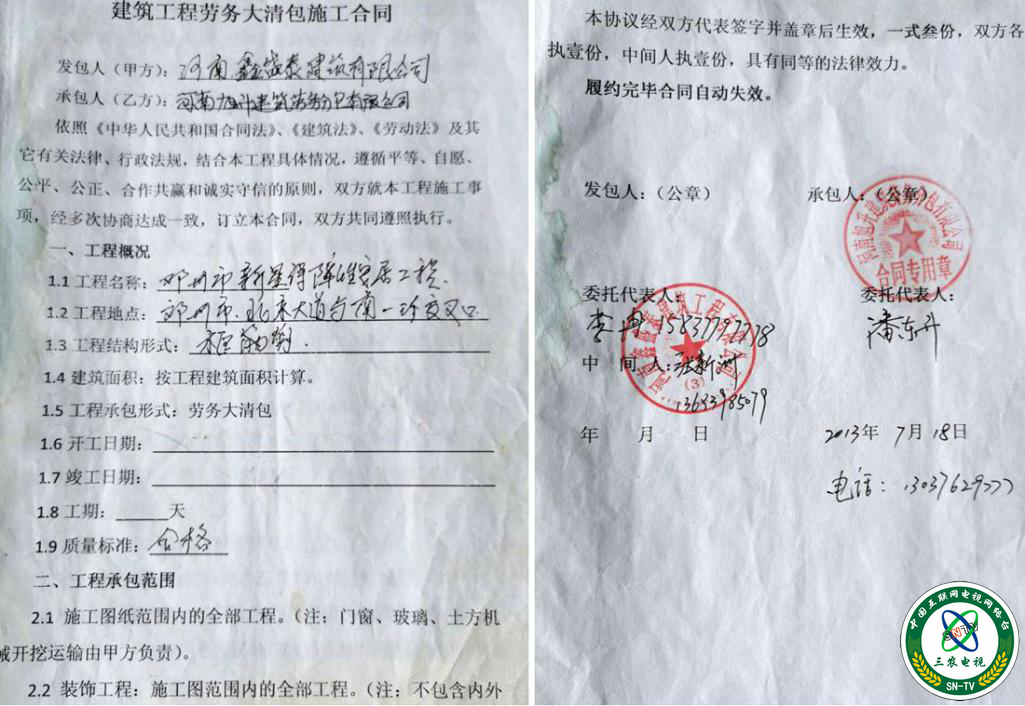 建筑工程劳务大清包施工合同
发包人（甲方）：河南鑫盛泰建筑有限公司
承包人（乙方）：河南旭升建筑劳务分包有限公司
依照《中华人民共和国合同法》、《建筑法》、《劳动法》及其
它有关法律、行政法规，结合本工程具体情况，遵循平等、自愿、
公平、公正、合作共赢和诚实守信的原则，双方就本工程施工事
项，经多次协商达成一致，订立本合同，双方共同遵照执行。
一、工程概况
1.1 工程名称：邓州市新星保障性安居工程.
1.2 工程地点：邓州市 大道与南一环交叉口
1.3 工程结构形式：框
1.4 建筑面积：按工程建筑面积计算。
1.5 工程承包形式：劳务大清包
1.6 开工日期：
1.7 竣工日期：
1.8 工期：______天
1.9 质量标准：合格
二、工程承包范围
2.1 施工图纸范围内的全部工程。（注：门窗、玻璃、土方机
械开挖运输由甲方负责）。
2.2 装饰工程：施工图范围内的全部工程。（注：不包含内外
本协议经双方代表签字并盖章后生效，一式叁份，双方各
执壹份，中间人执壹份，具有同等的法律效力。
履约完毕合同自动失效。
发包人：（公章） 承包人：（公章）
河南旭升建筑劳务分包有限公司
合同专用章
委托代表人： 委托代表人：
李 15837797778 潘东升
河南鑫盛泰建筑工程有限公司
（3）
中 间 人：张新洲
13633985079
年 月 日 2013年 7月18日
电话：13037629777
中国互联网电视网络台
SNTV
三农电视
SN-TV